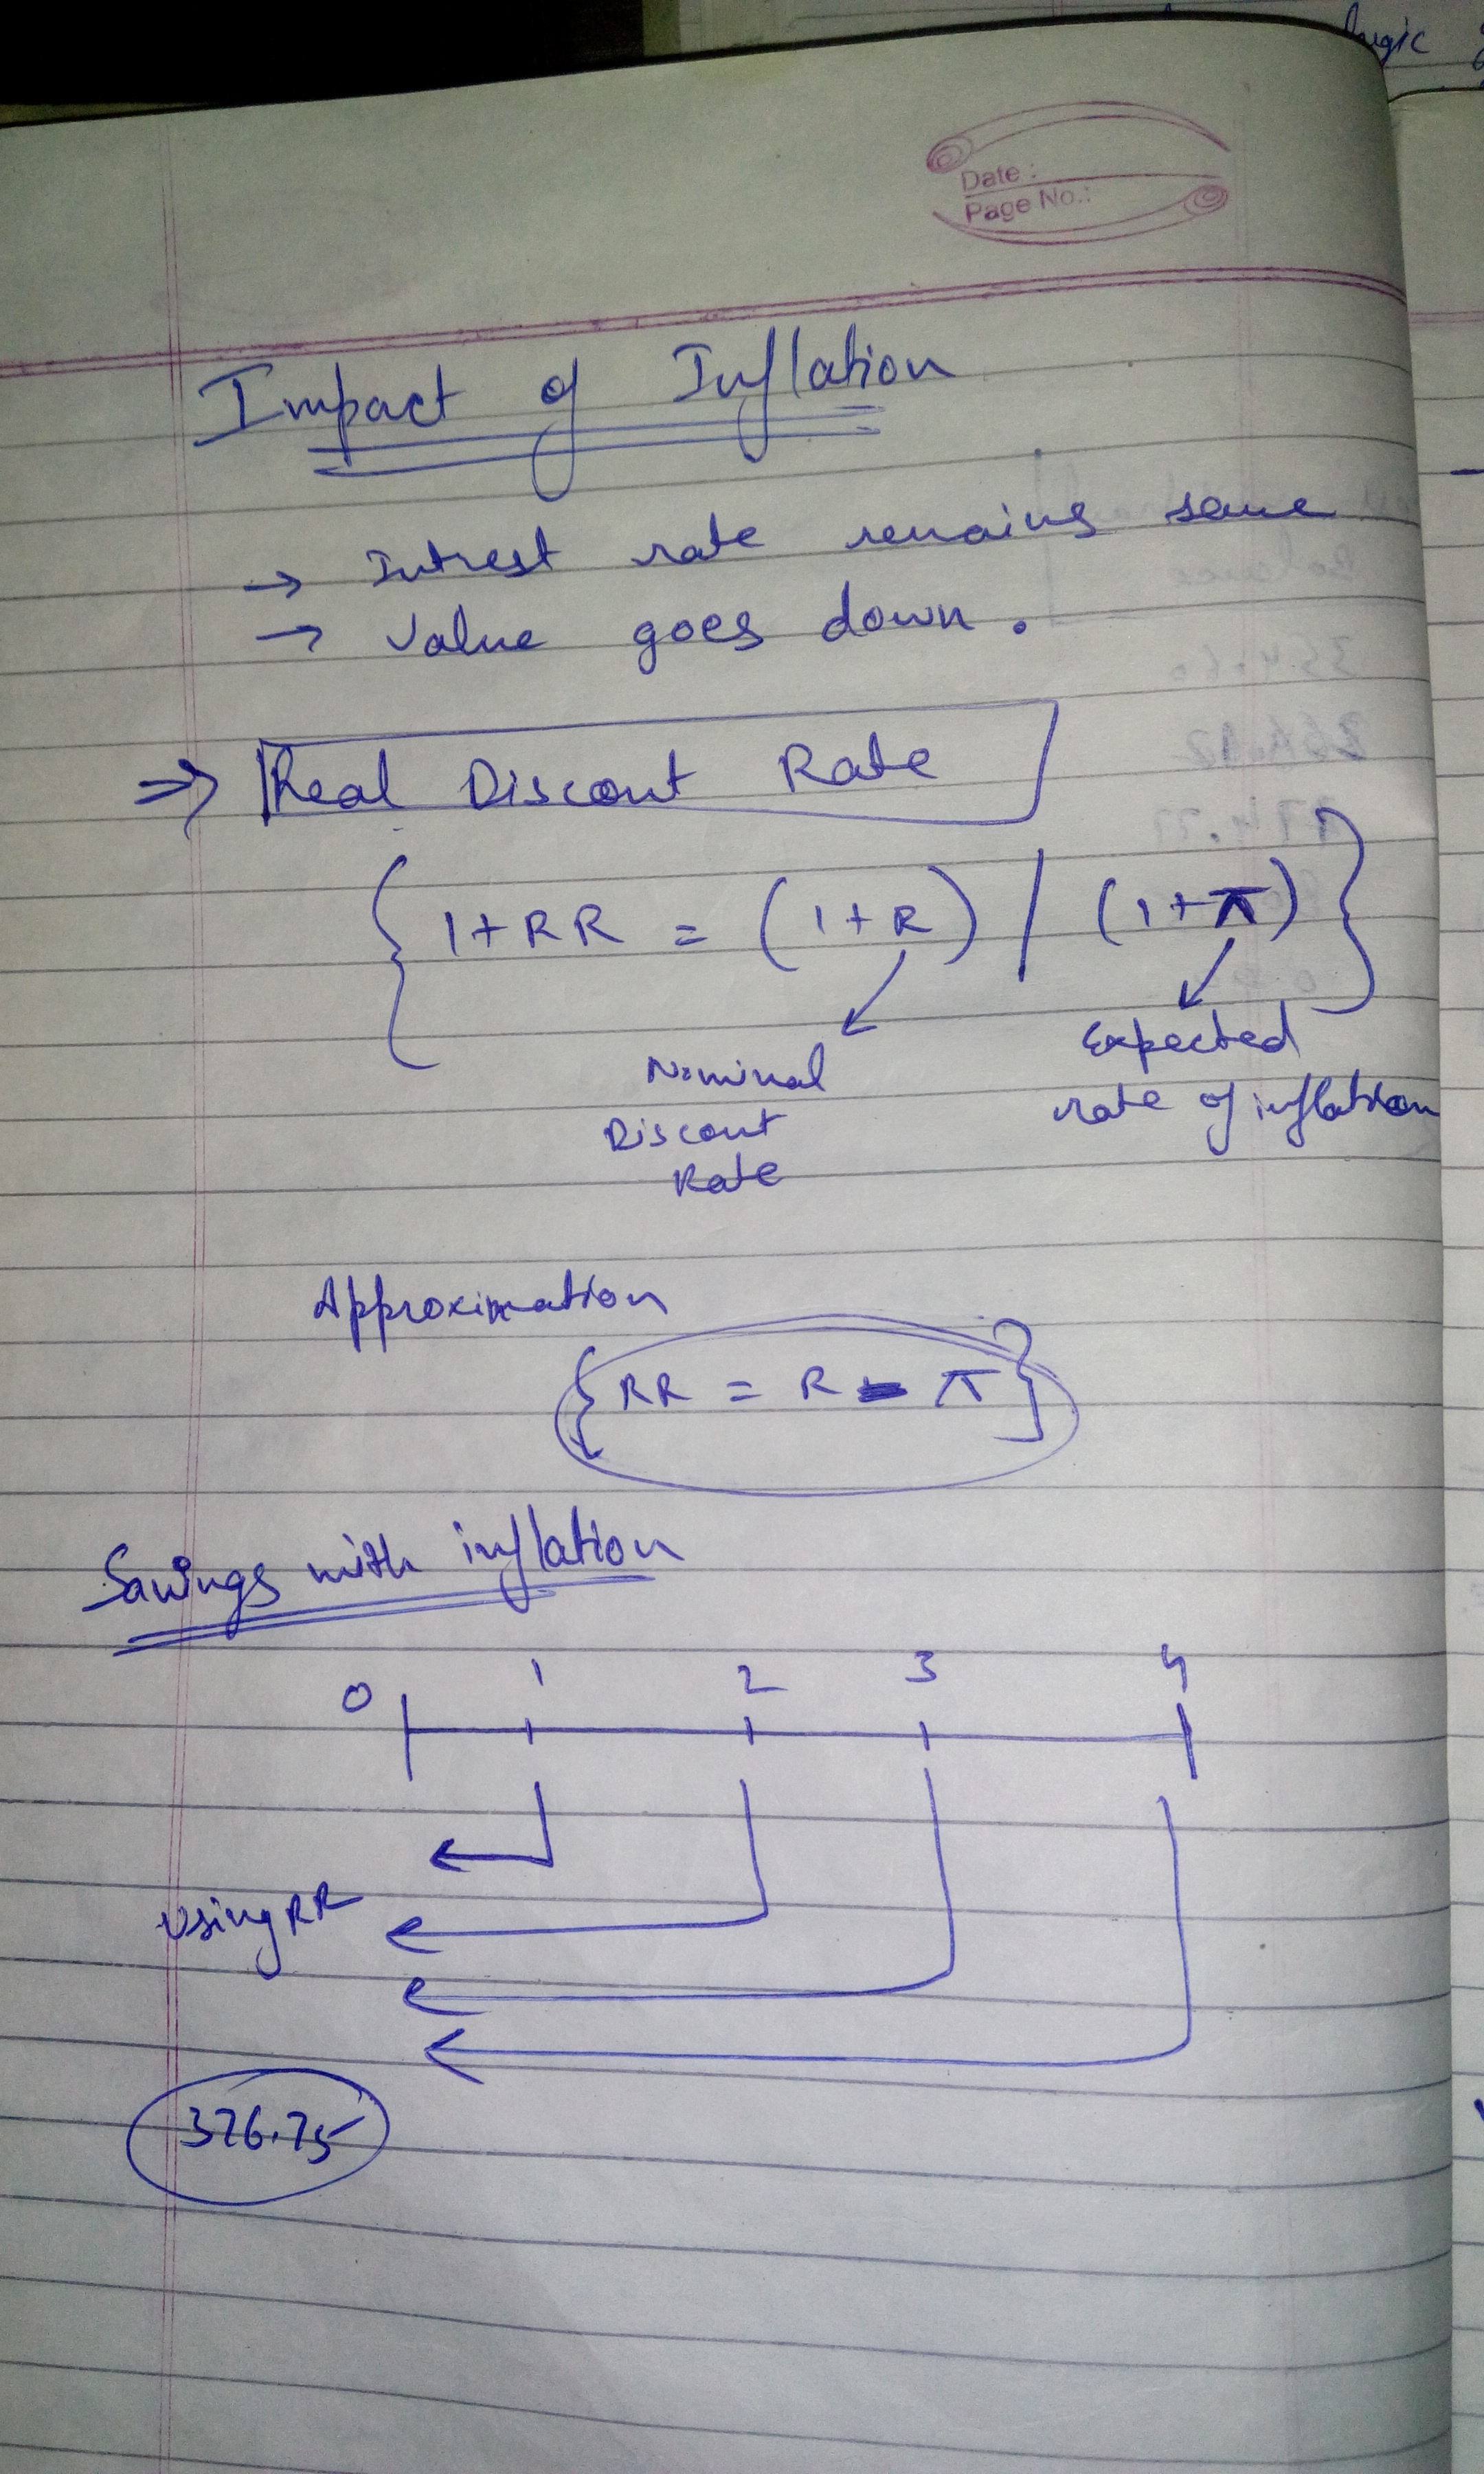 ogic
Date :
Page No.:
Impact of Inflation
→ Intrest rate remains same
→ Value goes down.
⇒ Real Discont Rate
{ 1+RR = (1+R) / (1+π) }
Nominal
Discont
Rate
Expected
rate of inflation
Approximation
{ RR = R - π }
Savings with inflation
0 1 2 3 4
Using RR
376.75